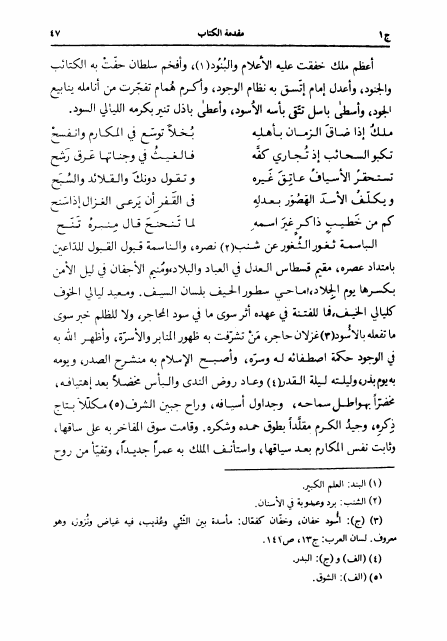 ج١ مقدمة الكتاب ٤٧
أعظم ملك خفقت عليه الأعلام والبُنُود(١)، وأفخم سلطان حفّت به الكتائب
والجنود، وأعدل إمام اتّسق به نظام الوجود، وأكرم هُمام تفجّرت من أنامله ينابيع
الجود، وأسطى باسل تتقى بأسه الأسود، وأعطى باذل تنير بكرمه الليالي السود.
ملكٌ إذا ضاق الـزمـان بـأهلِـه بُـخـلاً توسّع في المكارم وانفسحْ
تكبو السحائب إذ تُجاري كفّه فالغيثُ في وجناتها عَرق رشحْ
تستحقـرُ الأسيافُ عـاتـق غيره وتقول دونك والقلائد والسُبَحْ
ويكلّـف الأسد الهَصُور بعدله في القفر أن يرعى الغزال إذا سَنح
كم من خطيبٍ ذاكرٍ غيرَ اسمه لما تنحنح قال منبرُه تنح
الباسمة ثغور الثُغور عن شنب(٢) نصره، والناسمة قبول القبول للداعين
بامتداد عصره، مقيم قسطاس العدل في العباد والبلاد، ومُنيم الأجفان في ليل الأمن
بكسرها يوم الجِلاد، ماحي سطور الحيف بلسان السيف. ومعيد ليالي الخوف
كليالي الخيف، فما للفتنة في عهده أثر سوى ما في سود المحاجر، ولا للظلم خبر سوى
ما تفعله بالأسود(٣) غزلان حاجر، مَنْ تشرّفت به ظهور المنابر والأسرّة، وأظهر الله به
في الوجود حكمة اصطفائه له وسرّه، وأصبح الإسلام به منشرح الصدر، ويومه
به يوم بدر، وليلته ليلة القدر(٤) وعاد روض الندى والبأس مخضلاً بعد إهتيافه،
مخضرّاً بهواطل سماحه، وجداول أسيافه، وراح جبين الشرف(٥) مكللاً بتاج
ذكره، وجيدُ الكرم مقلّداً بطوق حمده وشكره. وقامت سوق المفاخر به على ساقها،
وثابت نفس المكارم بعد سياقها، واستأنف الملك به عمراً جديداً، وتفيّأ من روح
(١) البند: العلم الكبير.
(٢) الشنب: برد وعذوبة في الأسنان.
(٣) (ج): أُسود خفان، وخفّان كعفّان: مأسدة بين الثنّي وعُذيب، فيه غياض ونُزوز، وهو
معروف. لسان العرب: ج١٣، ص١٤٢.
(٤) (الف) و (ج): البدر.
(٥) (الف): الشوق.